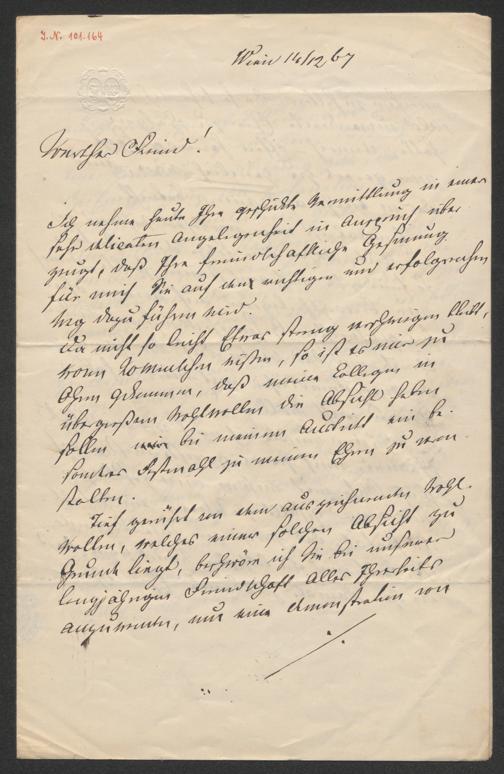 J. N. 101.164
Wien 14/12 67
Werther Freund!
Ich nehme heute Ihre geschickte Vermittlung in einer
sehr delicaten Angelegenheit in Anspruch über
zeugt, daß Ihre freundschaftliche Gesinnung
für mich Sie auf den richtigen und erfolgreichen
Weg dazu führen wird.
Da nicht so leicht Etwas streng verschwiegen bleibt,
wovon so so ist es mir zu
Ohren gekommen, daß meine Collegen in
übergroßem Wohlwollen die Absicht haben
sollen bei meinem Austritt ein be-
sonderes Festmahl zu meinen Ehren zu veran-
stalten.
Tief gerührt von dem ausgezeichneten Wohl-
wollen, welches einer solchen Absicht zu
Grunde liegt, beschwöre ich Sie bei unserer
langjährigen Freundschaft Alles Ihrerseits
anzuwenden, um eine Demonstration von
./.